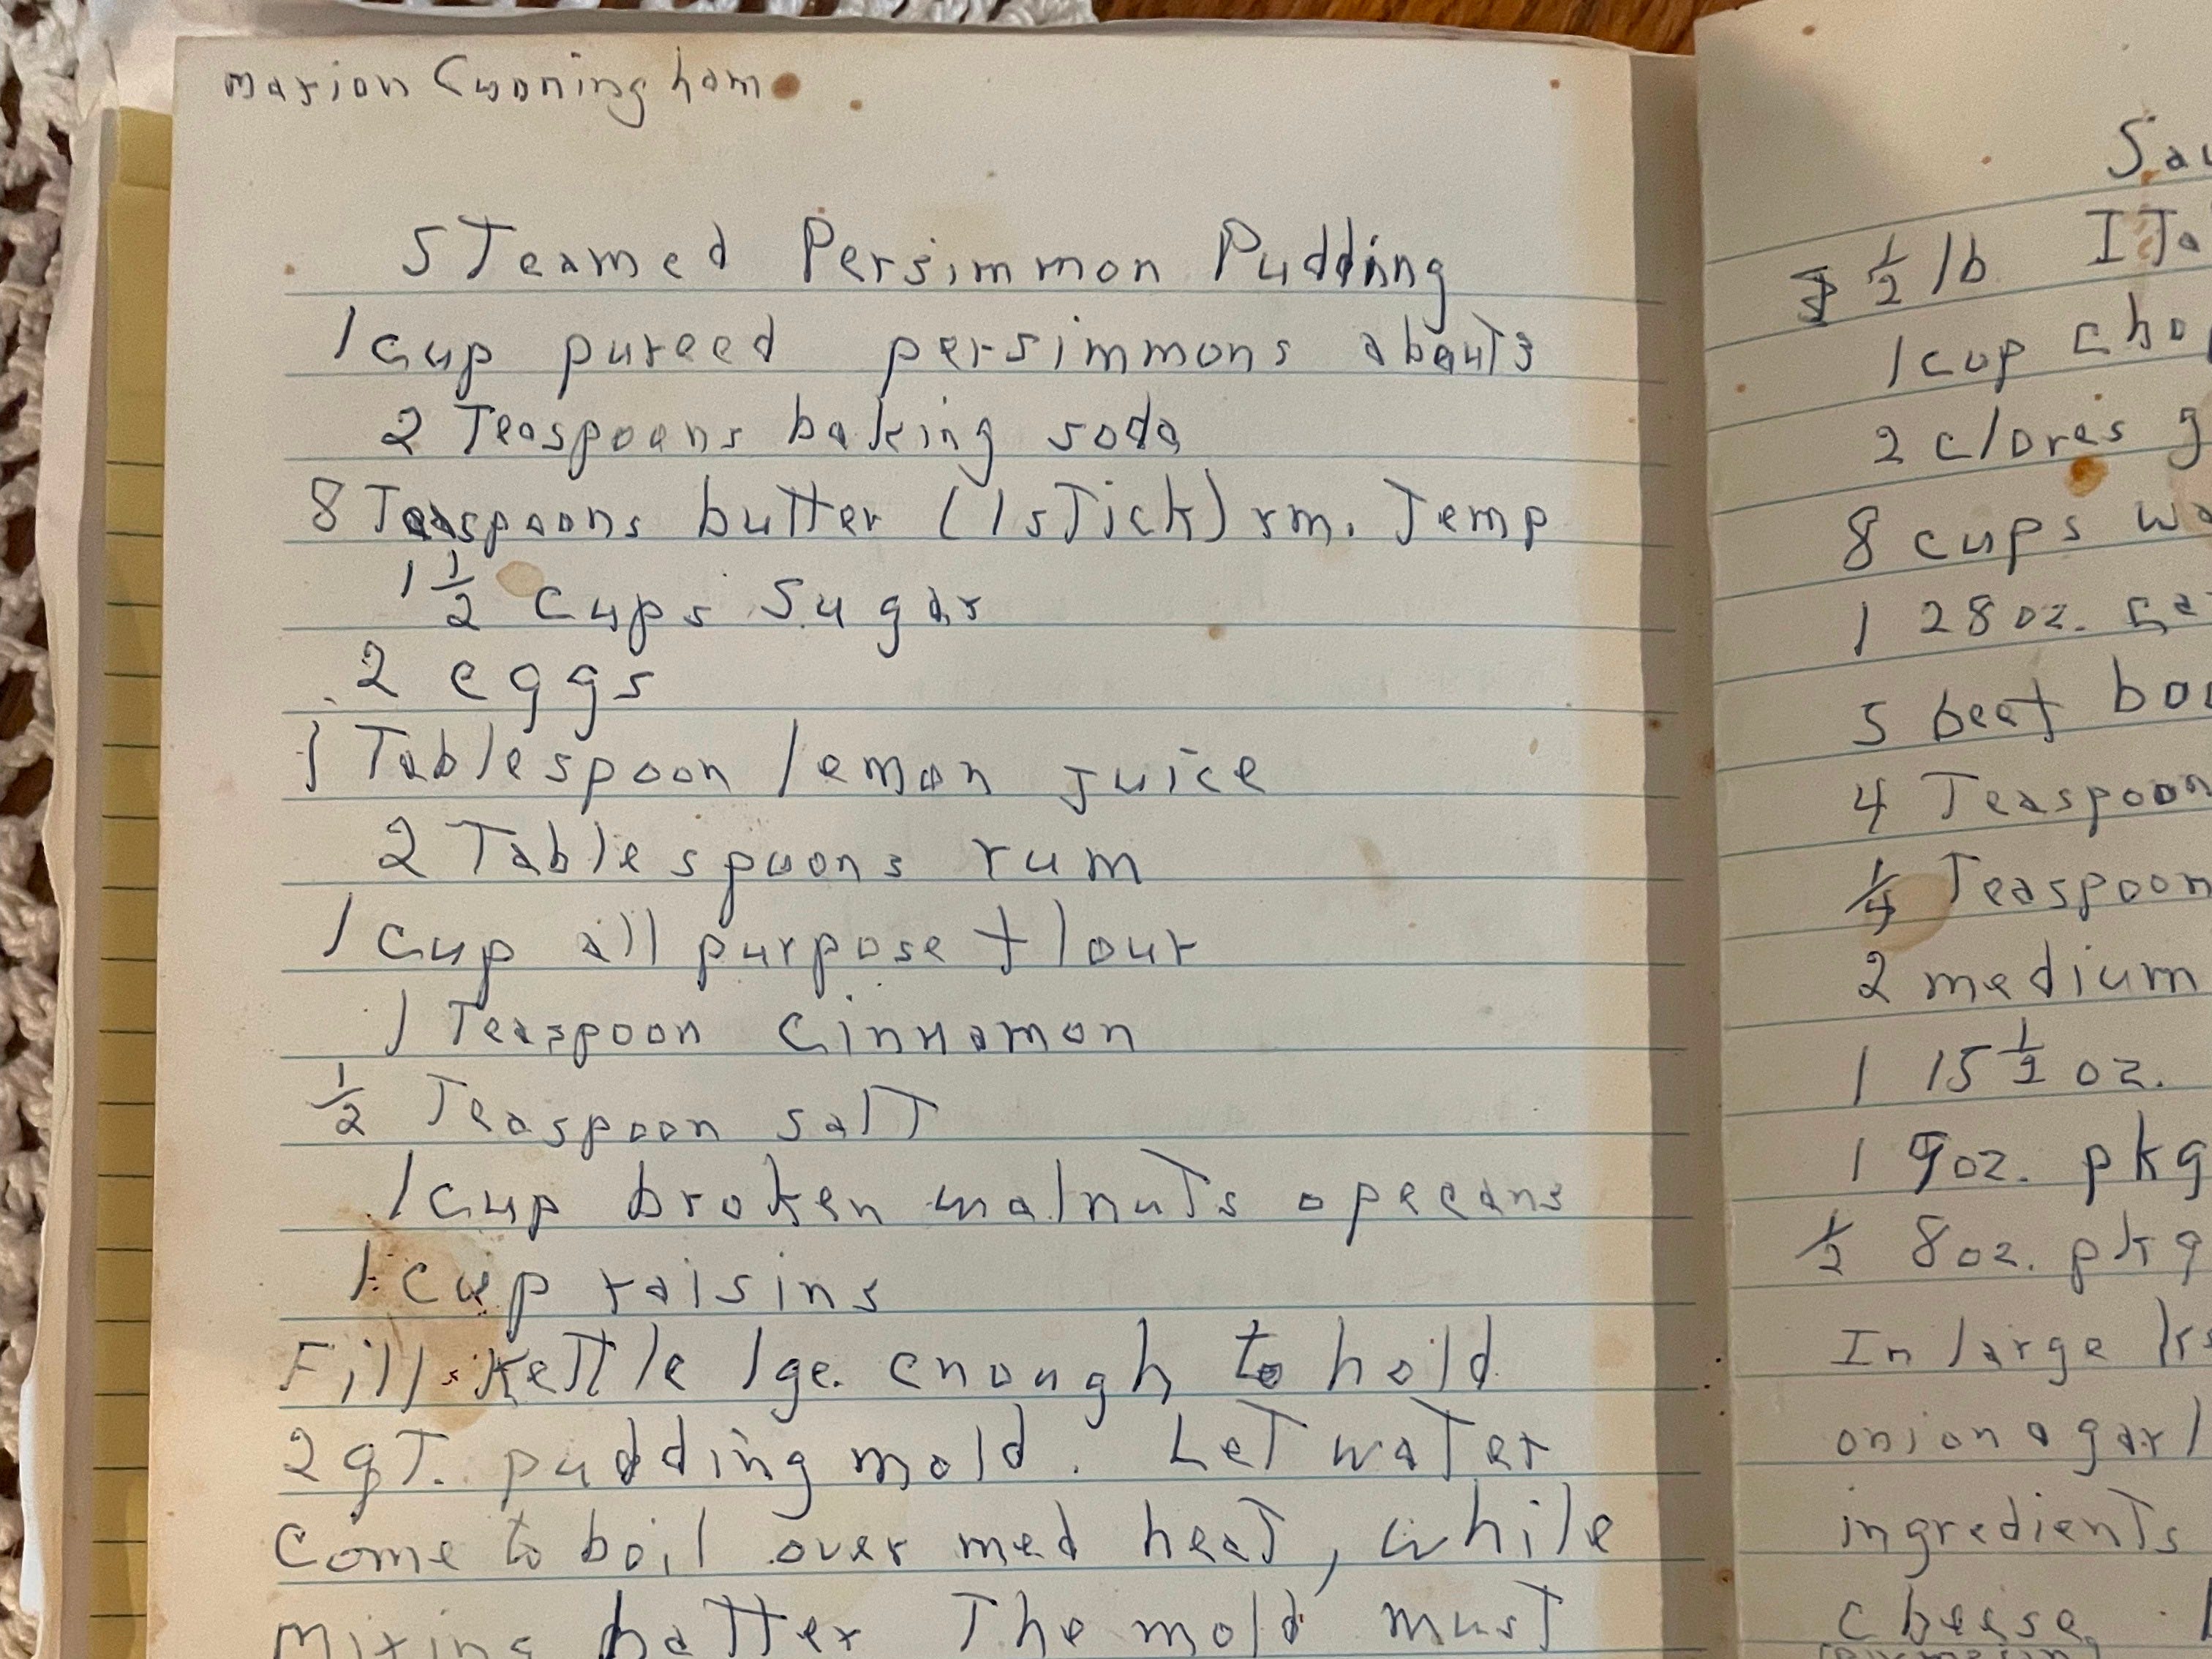 Marion Cunningham
Steamed Persimmon Pudding
1 cup pureed persimmons about 3
2 Teaspoons baking soda
8 Teaspoons butter (1 stick) rm. Temp
1 1/2 cups sugar
2 eggs
1 Tablespoon lemon juice
2 Tablespoons rum
1 cup all purpose flour
1 Teaspoon cinnamon
1/2 Teaspoon salt
1 cup broken walnuts o pecans
1 cup raisins
Fill Kettle lge. enough to hold
2 qT. pudding mold. Let water
come to boil over med heat, while
mixing batter The mold must
Sau
1/2 lb ITa
1 cup chop
2 cloves g
8 cups wa
1 28 oz. ca
5 beef bou
4 Teaspoon
1/4 Teaspoon
2 medium
1 15 1/2 oz.
1 9 oz. pkg
1/2 8 oz. pkg
In large
onion & garl
ingredients
cheese